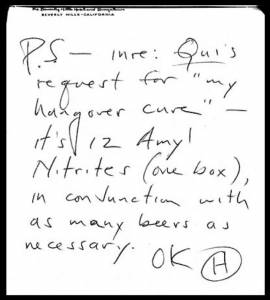 BEVERLY HILLS-CALIFORNIA
P.S — inre: Qui's
request for "my
hangover cure" —
it's 12 Amyl
Nitrites (one box),
in conjunction with
as many beers as
necessary.
OK H